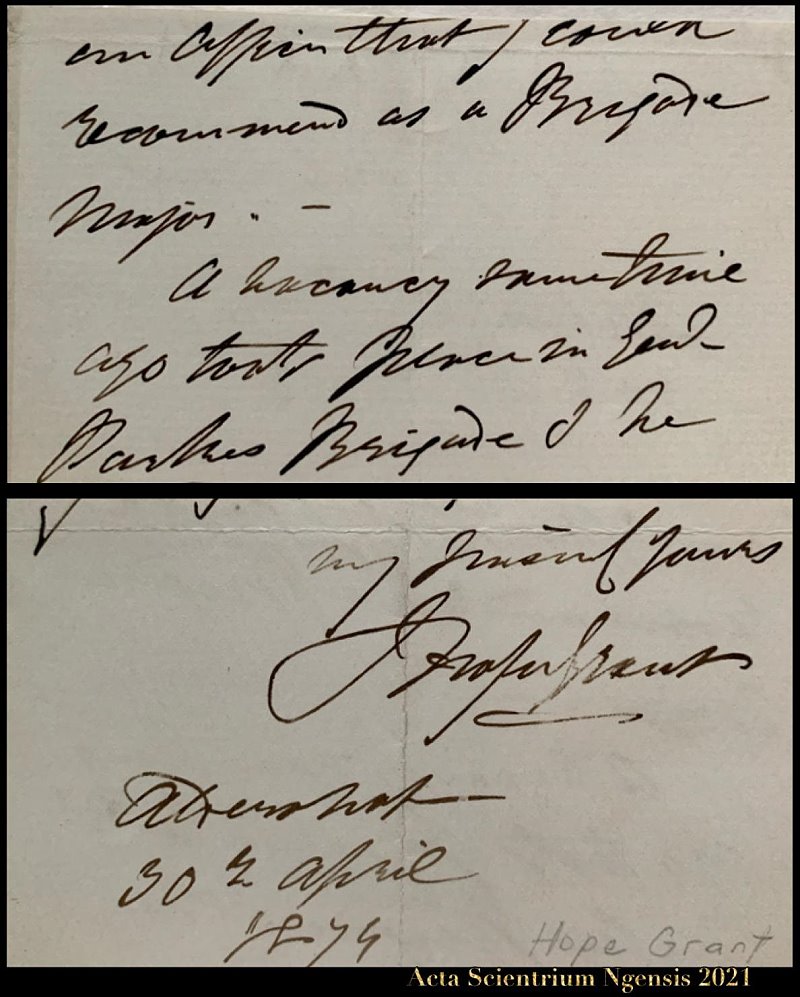 an officer that I could
recommend as a Brigade
Major. –
A vacancy sometime
ago took place in Genl
Parkes Brigade & he
my
yours
J Hope Grant
Aldershot –
30th April
1874
Hope Grant
Acta Scientrium Ngensis 2021